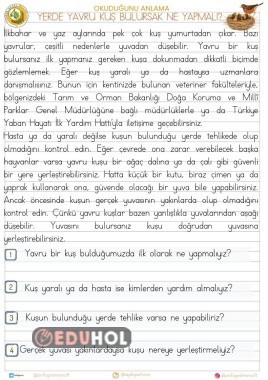 OKUDUĞUNU ANLAMA
YERDE YAVRU KUŞ BULURSAK NE YAPMALI?
İlkbahar ve yaz aylarında pek çok kuş yumurtadan çıkar. Bazı
yavrular, çeşitli nedenlerle yuvadan düşebilir. Yavru bir kuş
bulursanız ilk yapmanız gereken kuşa dokunmadan dikkatli biçimde
gözlemlemek. Eğer kuş yaralı ya da hastaysa uzmanlara
danışmalısınız. Bunun için kentinizde bulunan veteriner fakülteleriyle,
bölgenizdeki Tarım ve Orman Bakanlığı Doğa Koruma ve Millî
Parklar Genel Müdürlüğüne bağlı müdürlüklerle ya da Türkiye
Yaban Hayatı İlk Yardım Hattıyla iletişime geçebilirsiniz.
Hasta ya da yaralı değilse kuşun bulunduğu yerde tehlikede olup
olmadığını kontrol edin. Eğer çevrede ona zarar verebilecek başka
hayvanlar varsa yavru kuşu bir ağaç dalına ya da çalı gibi güvenli
bir yere yerleştirebilirsiniz. Hatta küçük bir kutu, biraz çimen ya da
yaprak kullanarak ona, güvende olacağı bir yuva bile yapabilirsiniz.
Ancak öncesinde kuşun gerçek yuvasının yakınlarda olup olmadığını
kontrol edin. Çünkü yavru kuşlar bazen yanlışlıkla yuvalarından aşağı
düşebilir. Yuvasını bulursanız kuşu doğrudan yuvasına
yerleştirebilirsiniz.
1 Yavru bir kuş bulduğumuzda ilk olarak ne yapmalıyız?
2 Kuş yaralı ya da hasta ise kimlerden yardım almalıyız?
3 Kuşun bulunduğu yerde tehlike varsa ne yapabiliriz?
EDUHOL
4 Gerçek yuvası yakınlardaysa kuşu nereye yerleştirmeliyiz?